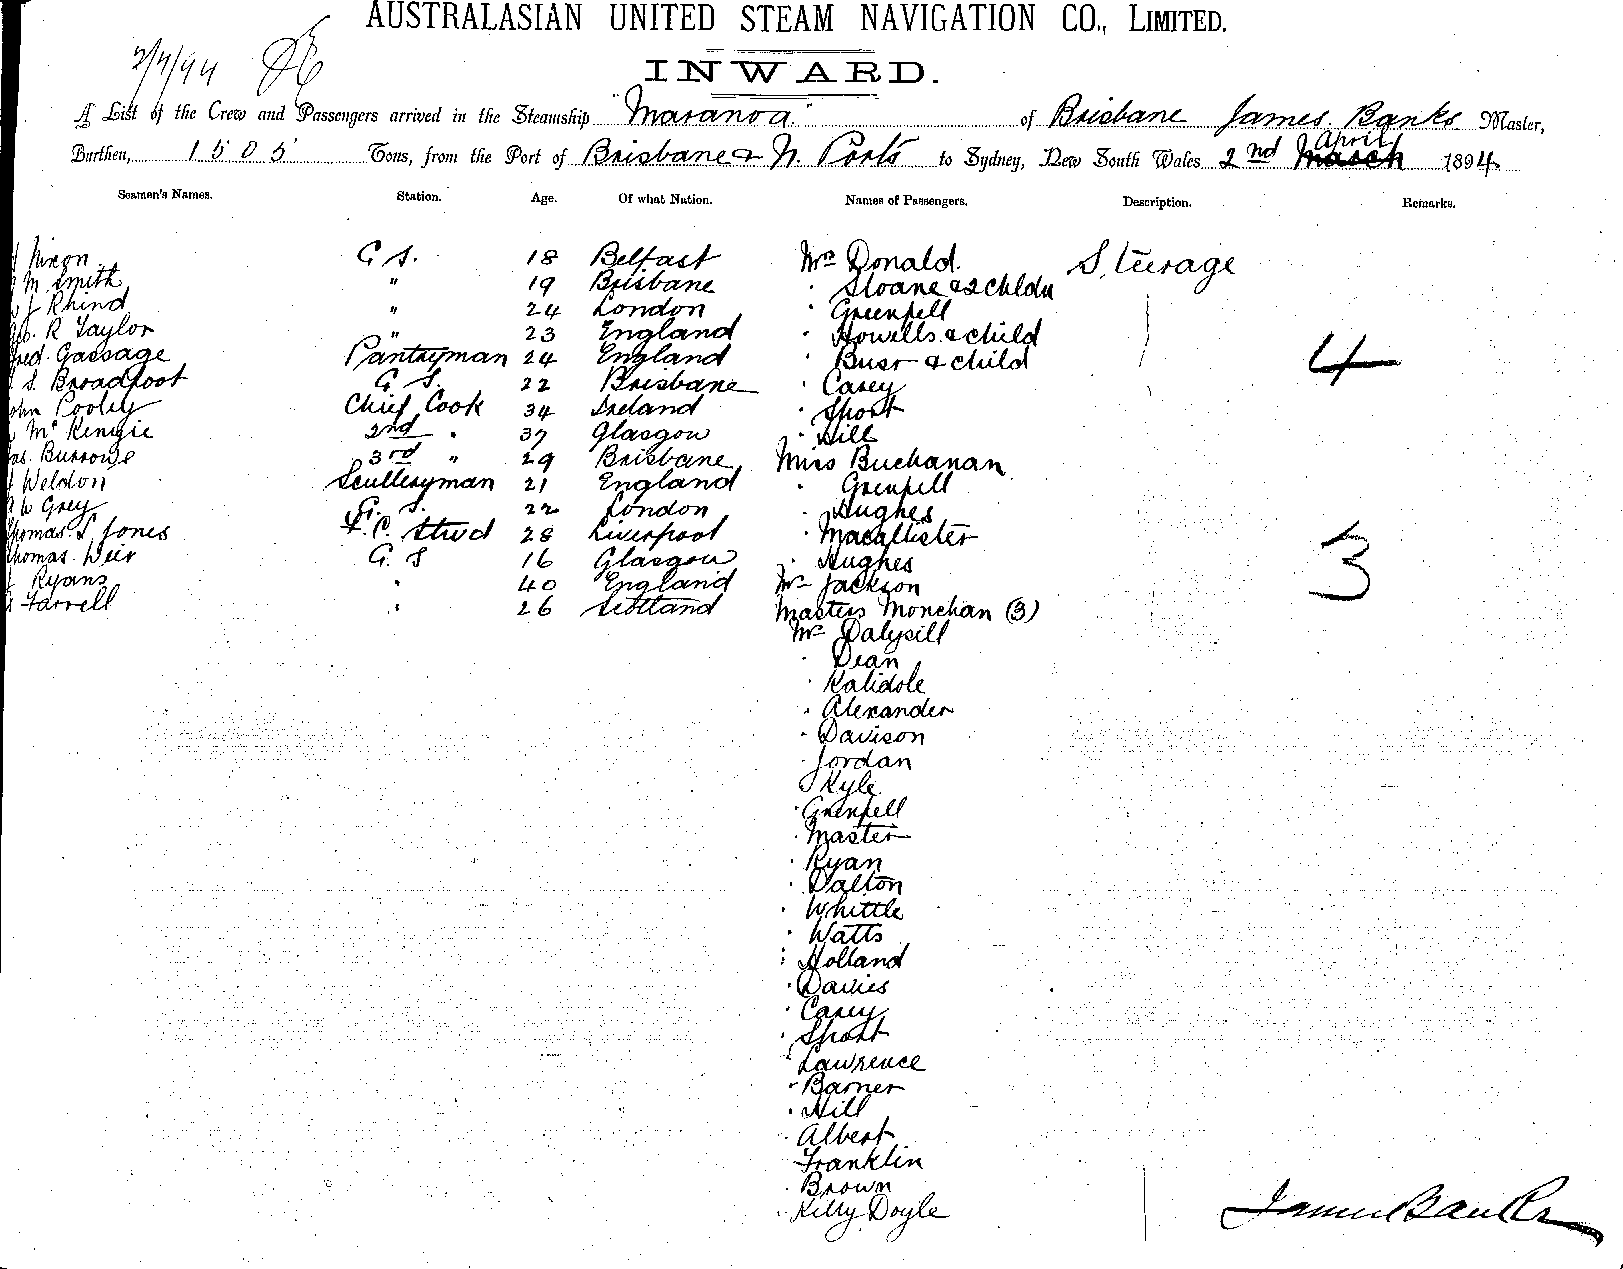 AUSTRALASIAN UNITED STEAM NAVIGATION CO., LIMITED.
2/4/94
INWARD.
A List of the Crew and Passengers arrived in the Steamship "Maranoa" of Brisbane James Banks Master,
Burthen, 1505 Tons, from the Port of Brisbane & N. Ports to Sydney, New South Wales 2nd April 1894.
Seamen's Names. Station. Age. Of what Nation. Names of Passengers. Description. Remarks.
Nixon G S. 18 Belfast Mrs Donald. Steerage
M. Smith " 19 Brisbane " Sloane & 2 Childn
J Rhind " 24 London " Grenfell
R Taylor " 23 England " Howells & child
Gassage Pantryman 24 England " & child 4
S. Broadfoot G S. 22 Brisbane " Casey
John Pooley Chief Cook 34 Ireland " Short
McKenzie 2nd " 37 Glasgow " Hill
Burrows 3rd " 29 Brisbane Miss Buchanan
Weldon Sculleryman 21 England " Grenfell
W Grey G. S. 22 London " Hughes
Thomas S. Jones F. C. Stwd 28 Liverpool " Macallister
Thomas Weir G. S 16 Glasgow " Hughes 3
Ryans " 40 England Mr Jackson
Farrell " 26 Scotland Masters Monehan (3)
Mr Dalysill
" Dean
" Kalidole
" Alexander
" Davison
" Jordan
" Kyle
" Grenfell
" Master
" Ryan
" Dalton
" Whittle
" Watts
" Holland
" Davies
" Casey
" Short
" Lawrence
" Barner
" Hill
" Albert
" Franklin
" Brown
" Kelly Doyle
James Banks